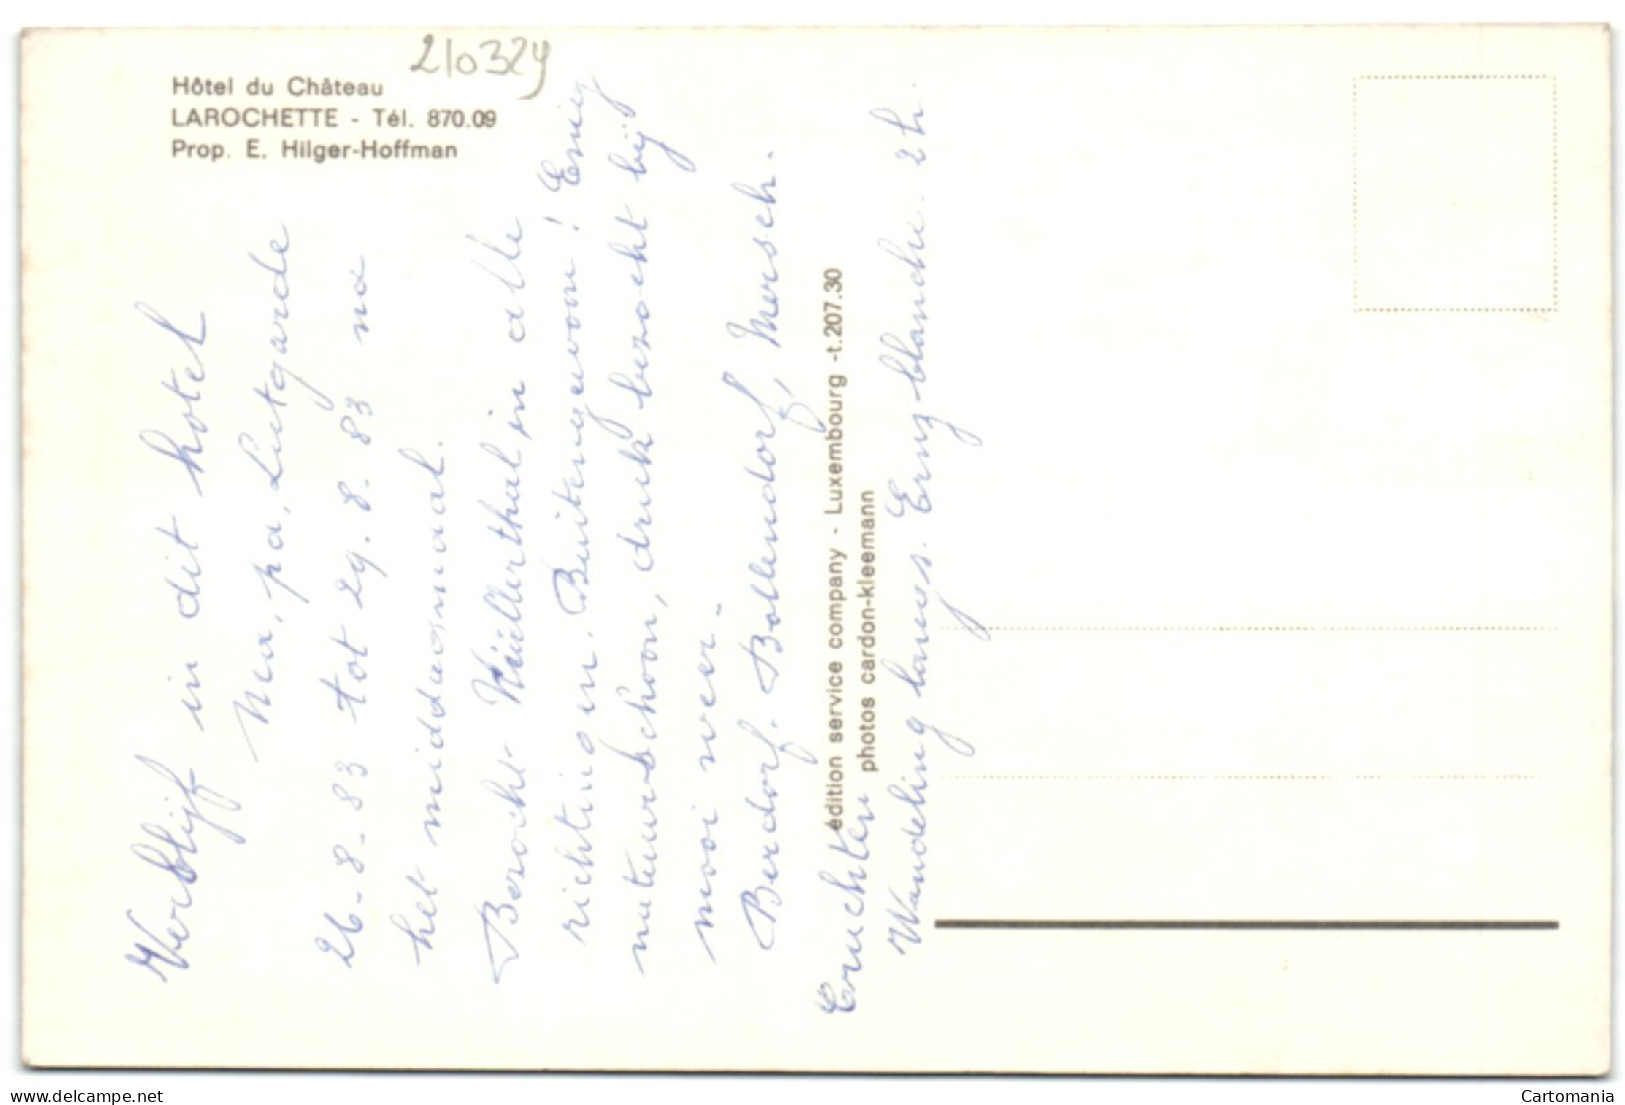 210329
Hôtel du Château
LAROCHETTE - Tél. 870.09
Prop. E. Hilger-Hoffman
Verblijf in dit hotel
Ma, pa, Lutgarde
26-8-83 tot 29.8.83 na
het middagmaal.
Bezocht Müllerthal in alle
richtingen. Buitengewoon! Enig
natuurschoon, druk bezocht bij
mooi weer.
Berdorf. Bollendorf, Mersch.
Ernchten
Wandeling langs. Ernz blanche. 2 h.
édition service company - Luxembourg -t.207.30
photos cardon-kleemann
delcampe.net
Cartomania